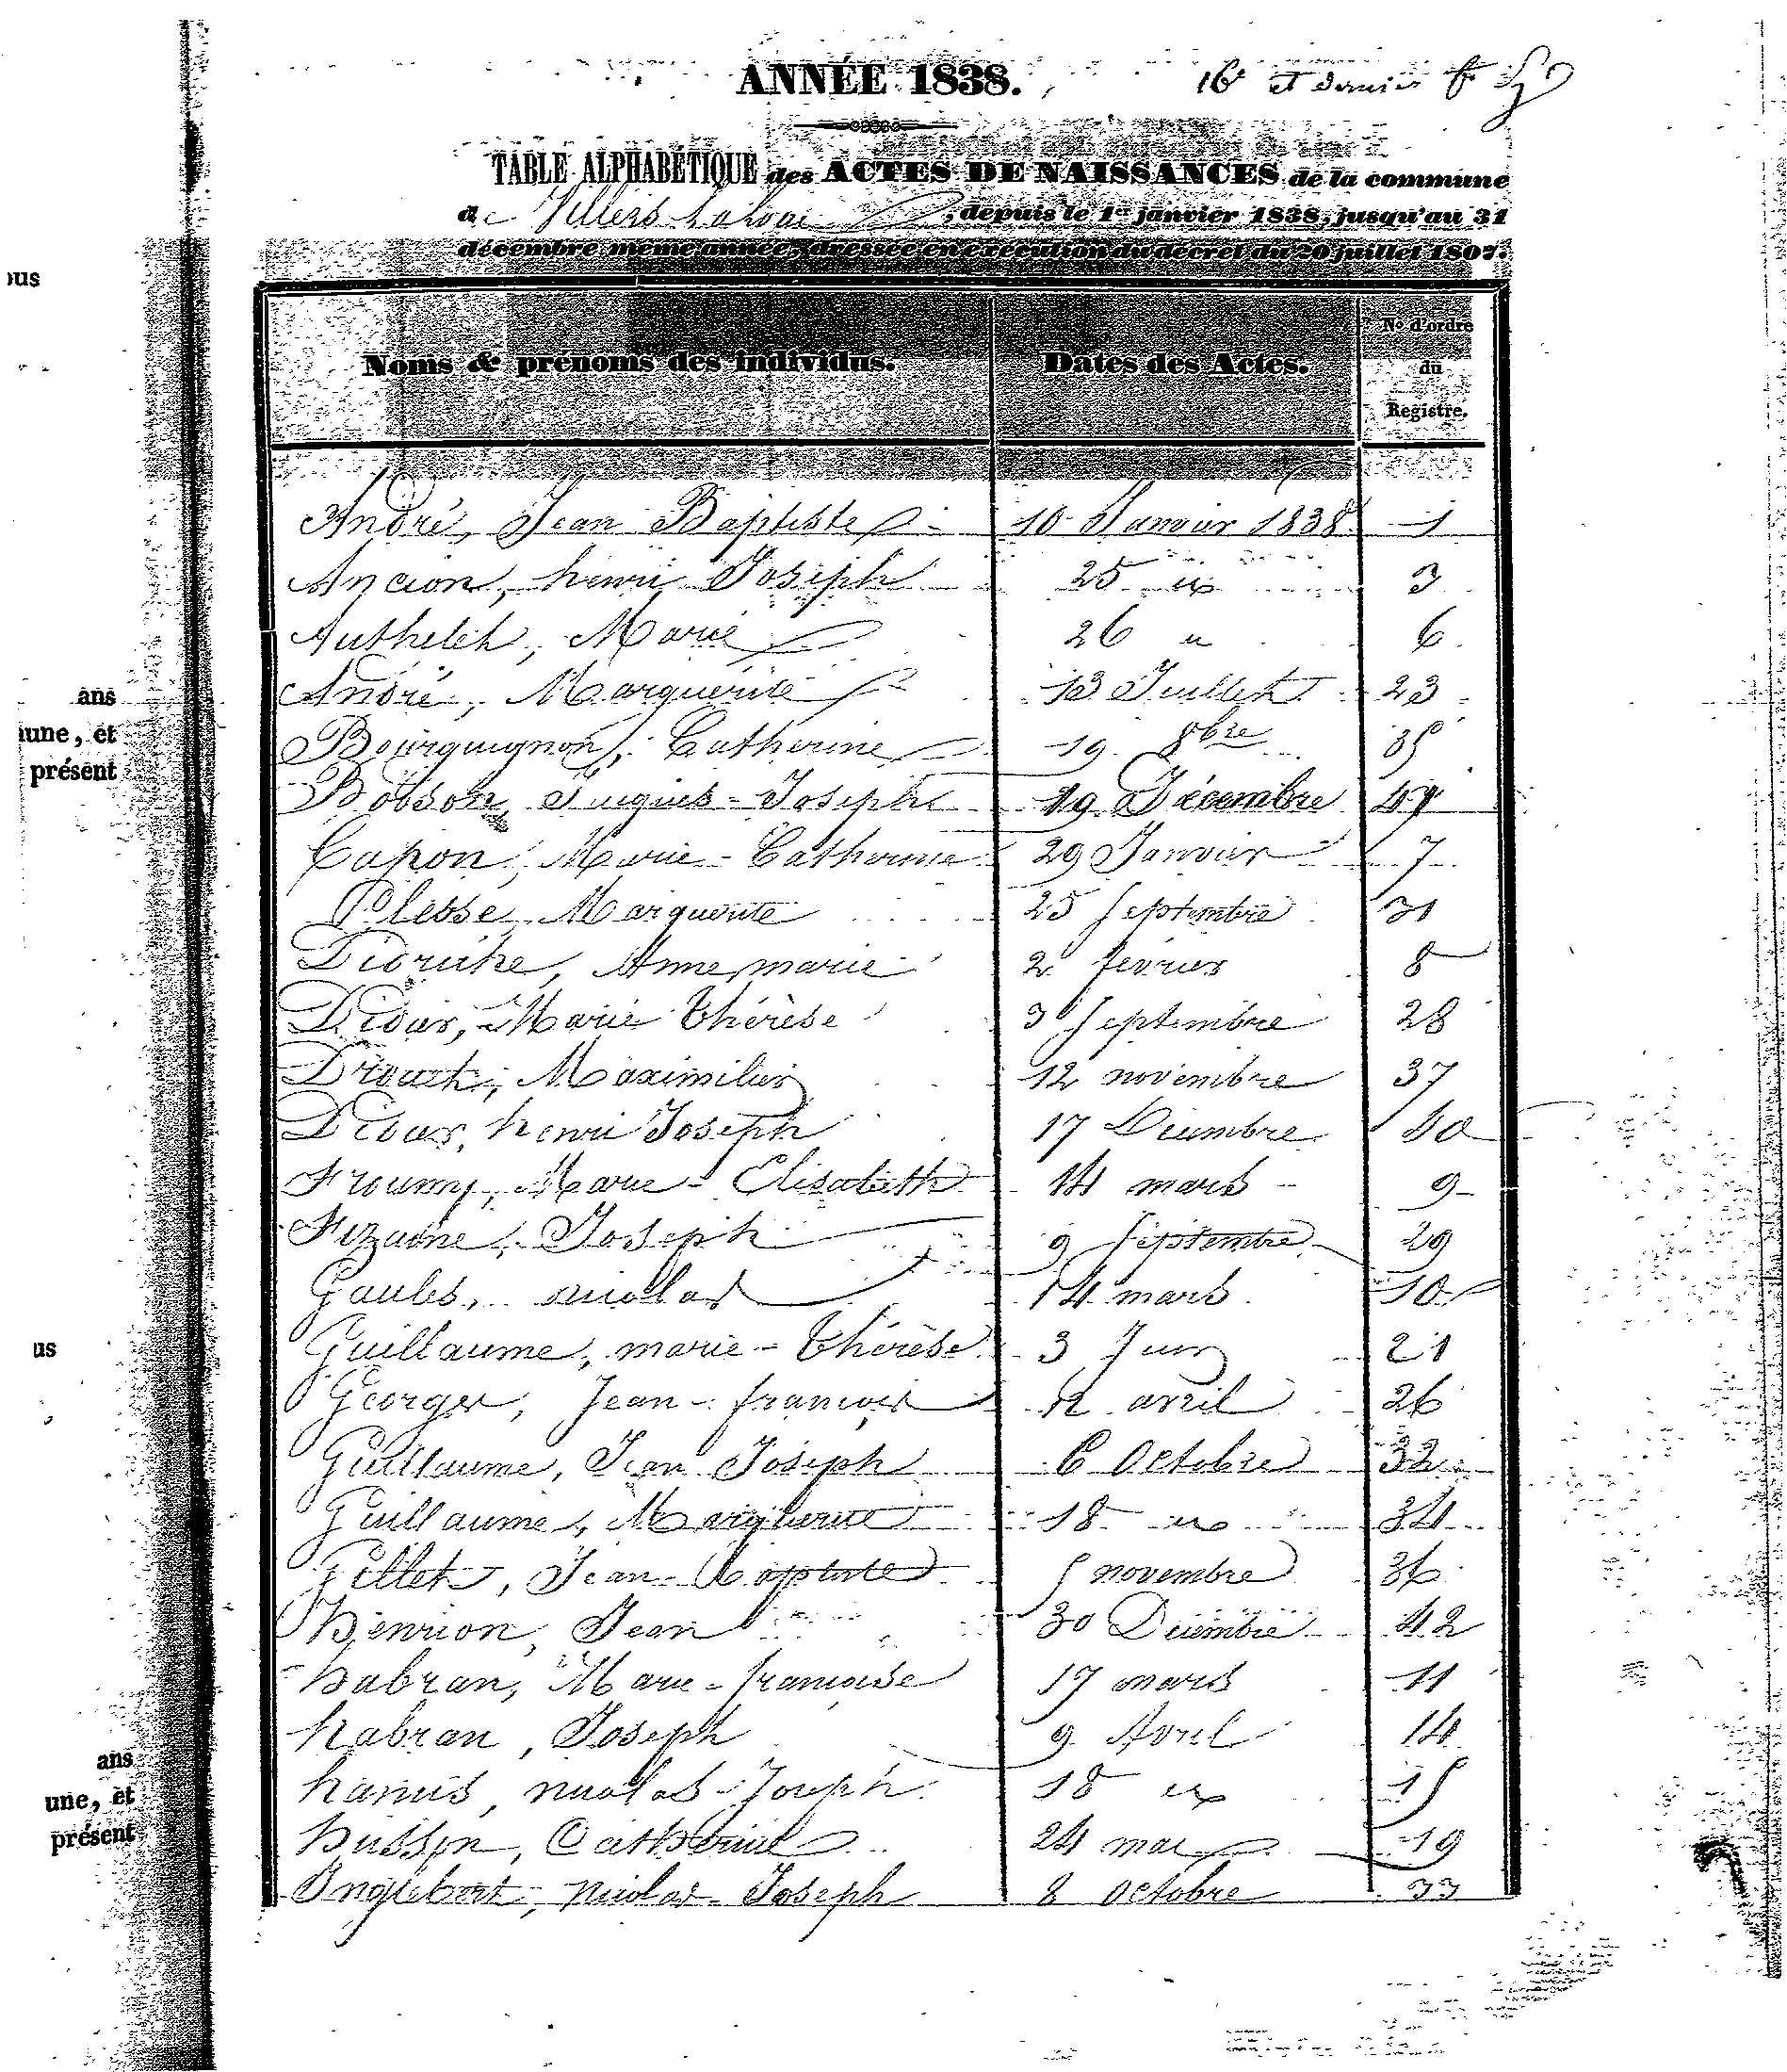 ANNÉE 1838.
16e et dernier f
TABLE ALPHABÉTIQUE des ACTES DE NAISSANCES de la commune
de Villers-la-Loue, depuis le 1er janvier 1838, jusqu'au 31
décembre même année, dressée en exécution du décret du 20 juillet 1807.
Noms & prénoms des individus. Dates des Actes. No d'ordre du Registre.
ous
André, Jean Baptiste 10 Janvier 1838 1
Ancion, henri Joseph 25 id 3
Authelet, Marie 26 id 6
ans
André, Marguerite 13 Juillet 23
une, et
Bourguignon, Catherine 19 8bre 35
présent
Bobson, Joseph 19 Décembre 41
Capon, Marie-Catherine 29 Janvier 7
Plesse, Marguerite 25 septembre 31
Anne marie 2 février 8
Marie Thérèse 3 septembre 28
Drouet, Maximilien 12 novembre 37
henri Joseph 17 Décembre 40
Marie-Elisabeth 14 mars 9
Fizaine, Joseph 9 septembre 29
Gaules, nicolas 14 mars 10
Guillaume, marie-Thérèse 3 Juin 21
us
Georges, Jean-françois 12 avril 26
Guillaume, Jean Joseph 6 Octobre 32
Guillaume, Marguerite 18 id 34
Gillet, Jean-Baptiste 5 novembre 36
Henrion, Jean 30 Décembre 42
habran, Marie-françoise 17 mars 11
habran, Joseph 9 Avril 14
ans
hanus, nicolas-Joseph 18 id 15
une, et
présent
husson, Catherine 24 mai 19
Inglebert, nicolas-Joseph 8 octobre 33